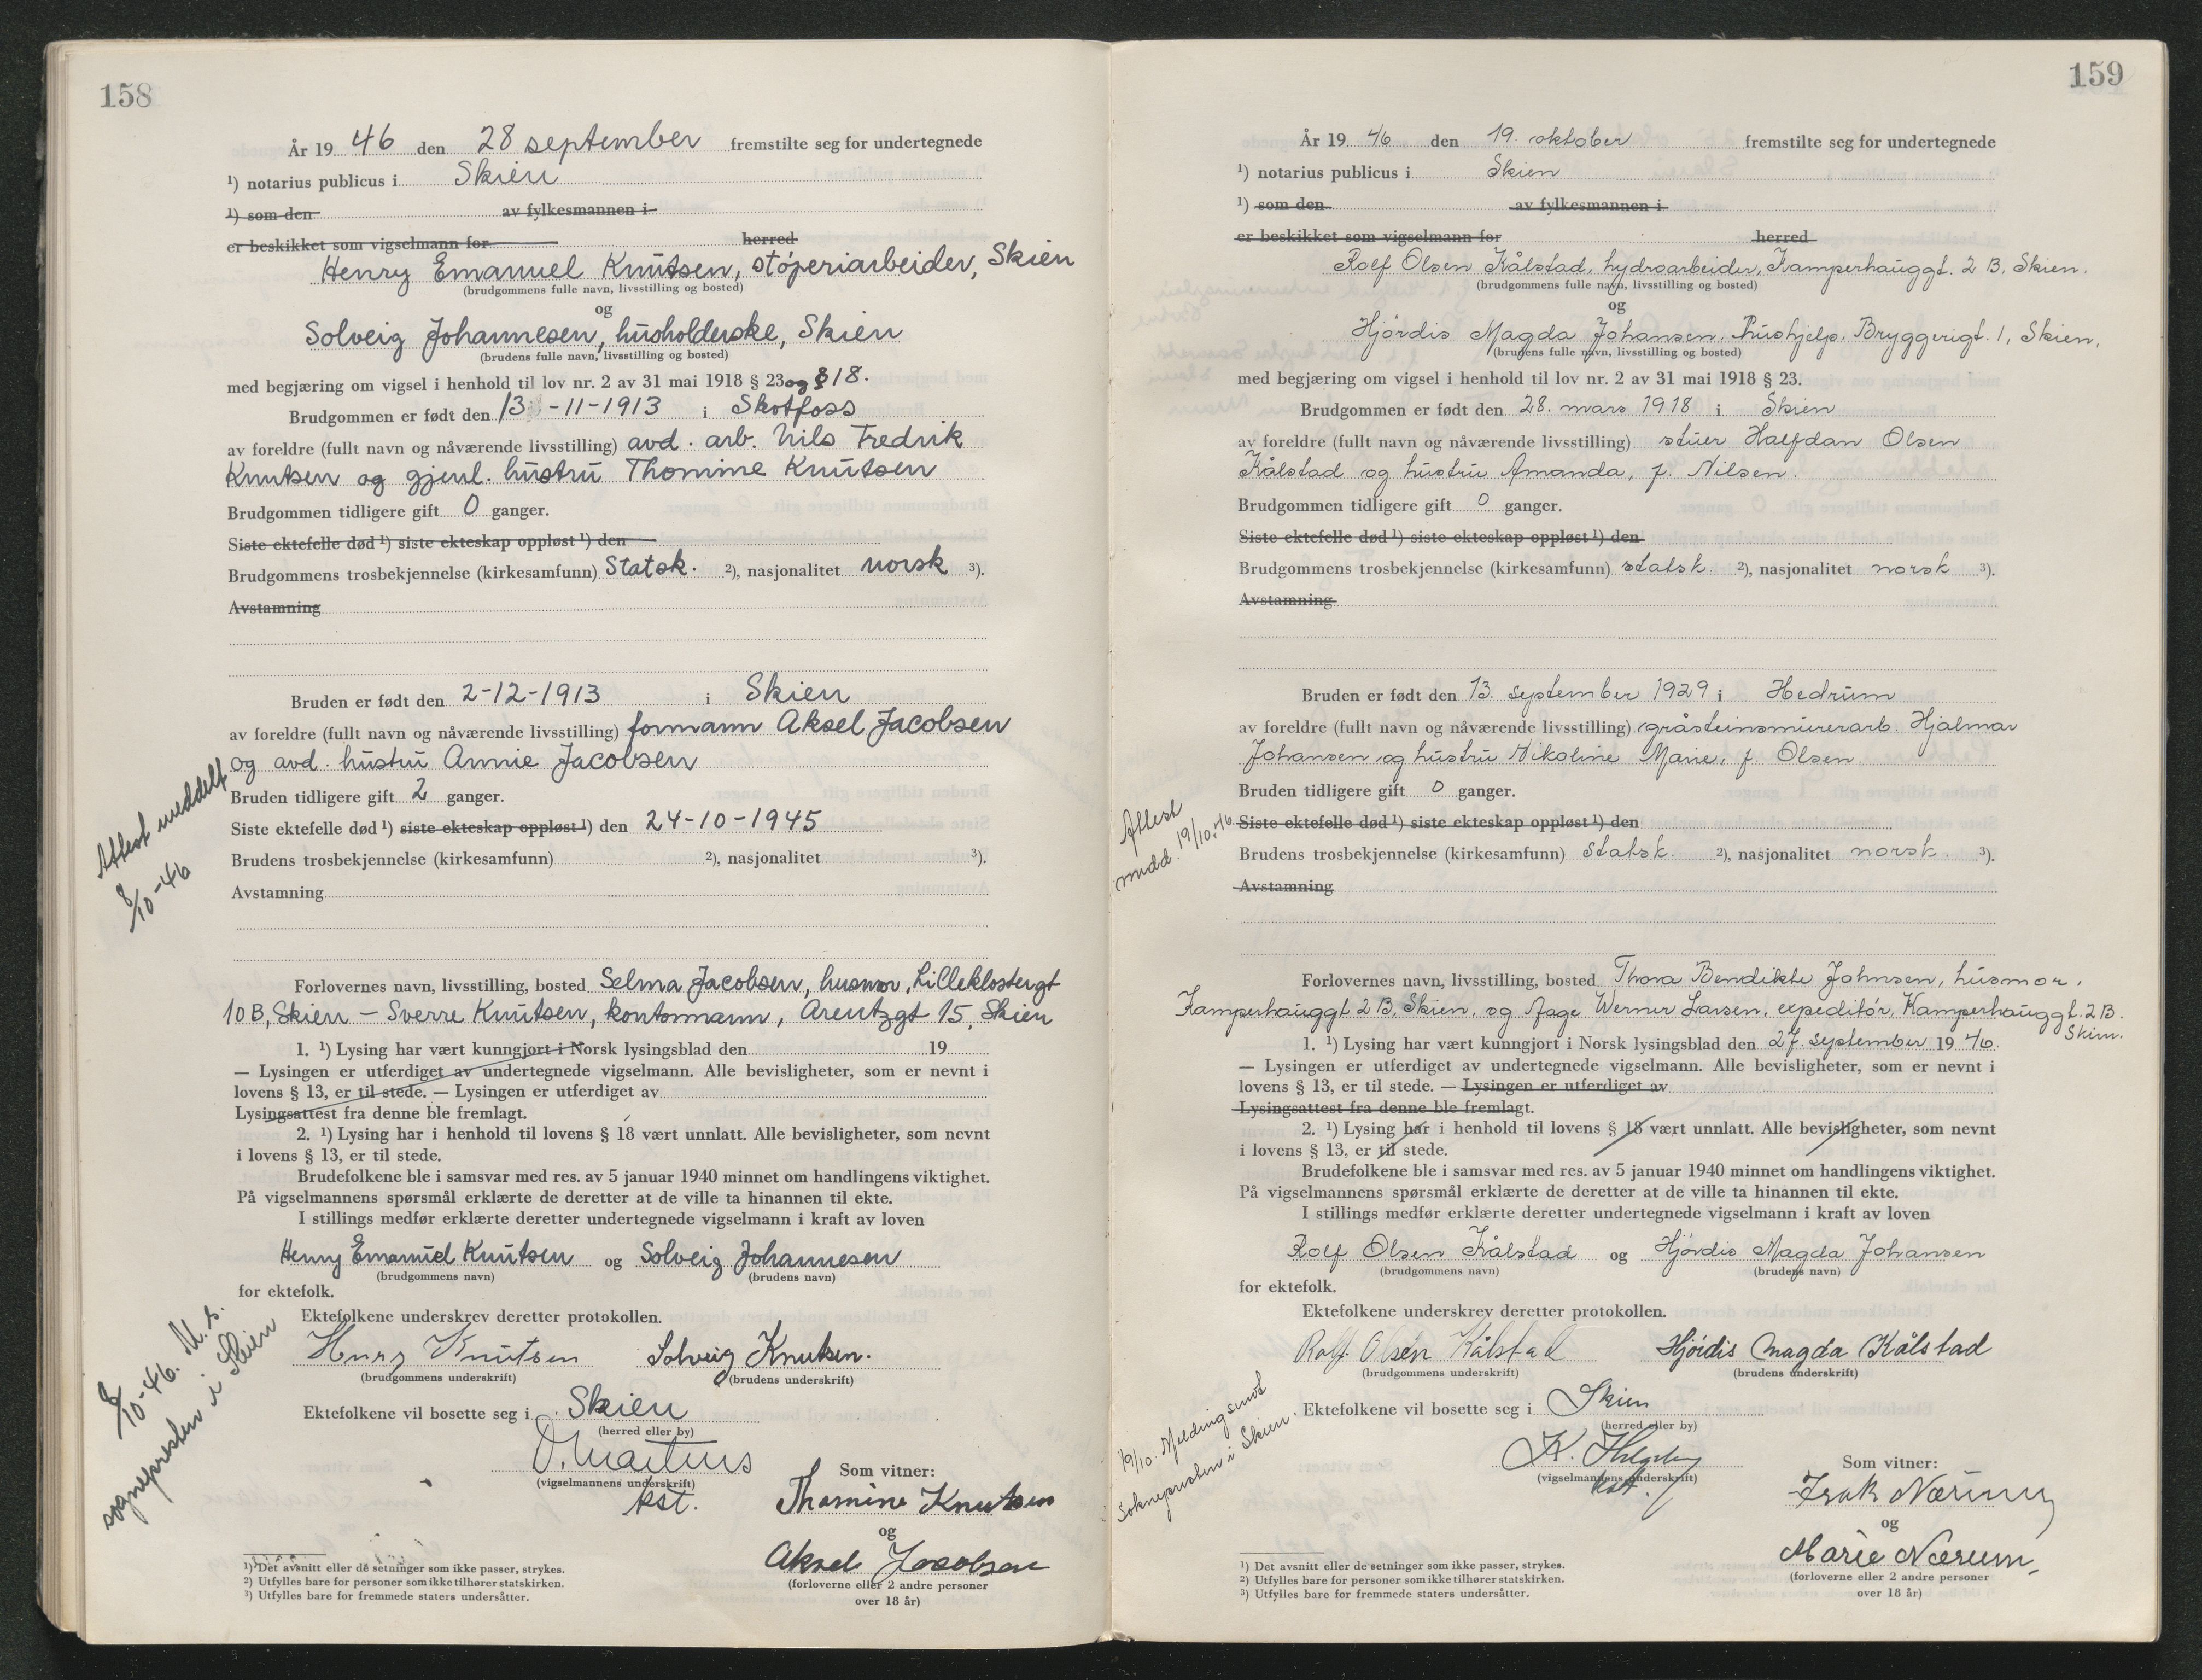 158
År 19 46 den 28 september fremstilte seg for undertegnede
¹) notarius publicus i Skien
¹) som den av fylkesmannen i
er beskikket som vigselmann for herred
Henry Emanuel Knutsen, støperiarbeider, Skien
(brudgommens fulle navn, livsstilling og bosted)
og
Solveig Johannesen, husholderske, Skien
(brudens fulle navn, livsstilling og bosted)
med begjæring om vigsel i henhold til lov nr. 2 av 31 mai 1918 § 23 og § 18.
Brudgommen er født den 13 -11-1913 i Skotfoss
av foreldre (fullt navn og nåværende livsstilling) avd. arb. Nils Fredrik
Knutsen og gjenl. hustru Thomine Knutsen
Brudgommen tidligere gift 0 ganger.
Siste ektefelle død ¹) siste ekteskap oppløst ¹) den
Brudgommens trosbekjennelse (kirkesamfunn) Statsk. ²), nasjonalitet norsk ³).
Avstamning
Bruden er født den 2-12-1913 i Skien
av foreldre (fullt navn og nåværende livsstilling) formann Aksel Jacobsen
og avd. hustru Annie Jacobsen
Bruden tidligere gift 2 ganger.
Siste ektefelle død ¹) siste ekteskap oppløst ¹) den 24-10-1945
Brudens trosbekjennelse (kirkesamfunn) ²), nasjonalitet ³).
Avstamning
Attest meddelt
8/10-46
Forlovernes navn, livsstilling, bosted Selma Jacobsen, husmor, Lilleklostergt
10 B, Skien – Sverre Knutsen, kontormann, Arentzgt 15, Skien
1. ¹) Lysing har vært kunngjort i Norsk lysingsblad den 19
— Lysingen er utferdiget av undertegnede vigselmann. Alle bevisligheter, som er nevnt i
lovens § 13, er til stede. — Lysingen er utferdiget av
Lysingsattest fra denne ble fremlagt.
2. ¹) Lysing har i henhold til lovens § 18 vært unnlatt. Alle bevisligheter, som nevnt
i lovens § 13, er til stede.
Brudefolkene ble i samsvar med res. av 5 januar 1940 minnet om handlingens viktighet.
På vigselmannens spørsmål erklærte de deretter at de ville ta hinannen til ekte.
I stillings medfør erklærte deretter undertegnede vigselmann i kraft av loven
Henry Emanuel Knutsen og Solveig Johannesen
(brudgommens navn) (brudens navn)
for ektefolk.
Ektefolkene underskrev deretter protokollen.
Henry Knutsen Solveig Knutsen.
(brudgommens underskrift) (brudens underskrift)
8/10-46. M. s.
sognepresten i Skien
Ektefolkene vil bosette seg i Skien
(herred eller by)
(vigselmannens underskrift)
kst.
Som vitner:
Thomine Knutsen
og
Aksel Jacobsen
(forloverne eller 2 andre personer
over 18 år)
¹) Det avsnitt eller de setninger som ikke passer, strykes.
²) Utfylles bare for personer som ikke tilhører statskirken.
³) Utfylles bare for fremmede staters undersåtter.
159
År 19 46 den 19. oktober fremstilte seg for undertegnede
¹) notarius publicus i Skien
¹) som den av fylkesmannen i
er beskikket som vigselmann for herred
Rolf Olsen Kålstad, hydroarbeider, Kamperhauggt. 2 B, Skien.
(brudgommens fulle navn, livsstilling og bosted)
og
Hjørdis Magda Johansen, hushjelp, Bryggerigt. 1, Skien,
(brudens fulle navn, livsstilling og bosted)
med begjæring om vigsel i henhold til lov nr. 2 av 31 mai 1918 § 23.
Brudgommen er født den 28. mars 1918 i Skien
av foreldre (fullt navn og nåværende livsstilling) stuer Halfdan Olsen
Kålstad og hustru Amanda, f. Nilsen.
Brudgommen tidligere gift 0 ganger.
Siste ektefelle død ¹) siste ekteskap oppløst ¹) den
Brudgommens trosbekjennelse (kirkesamfunn) statsk. ²), nasjonalitet norsk ³).
Avstamning
Bruden er født den 13. september 1929 i Hedrum
av foreldre (fullt navn og nåværende livsstilling) gråsteinsmurerarb. Hjalmar
Johansen og hustru Nikoline Marie, f. Olsen
Bruden tidligere gift 0 ganger.
Attest
medd. 19/10-46
Siste ektefelle død ¹) siste ekteskap oppløst ¹) den
Brudens trosbekjennelse (kirkesamfunn) statsk. ²), nasjonalitet norsk. ³).
Avstamning
Forlovernes navn, livsstilling, bosted Thora Bendikte Johnsen, husmor,
Kamperhauggt 2 B, Skien, og Aage Werner Larsen, expeditør, Kamperhauggt. 2 B.
Skien.
1. ¹) Lysing har vært kunngjort i Norsk lysingsblad den 27. september 19 46.
— Lysingen er utferdiget av undertegnede vigselmann. Alle bevisligheter, som er nevnt i
lovens § 13, er til stede. — Lysingen er utferdiget av
Lysingsattest fra denne ble fremlagt.
2. ¹) Lysing har i henhold til lovens § 18 vært unnlatt. Alle bevisligheter, som nevnt
i lovens § 13, er til stede.
Brudefolkene ble i samsvar med res. av 5 januar 1940 minnet om handlingens viktighet.
På vigselmannens spørsmål erklærte de deretter at de ville ta hinannen til ekte.
I stillings medfør erklærte deretter undertegnede vigselmann i kraft av loven
Rolf Olsen Kålstad og Hjørdis Magda Johansen
(brudgommens navn) (brudens navn)
for ektefolk.
Ektefolkene underskrev deretter protokollen.
Rolf Olsen Kålstad Hjørdis Magda Kålstad
(brudgommens underskrift) (brudens underskrift)
19/10. Melding sendt
Soknepresten i Skien.
Ektefolkene vil bosette seg i Skien
(herred eller by)
(vigselmannens underskrift)
kst.
Som vitner:
Nærum
og
Marie Nærum,
(forloverne eller 2 andre personer
over 18 år)
¹) Det avsnitt eller de setninger som ikke passer, strykes.
²) Utfylles bare for personer som ikke tilhører statskirken.
³) Utfylles bare for fremmede staters undersåtter.